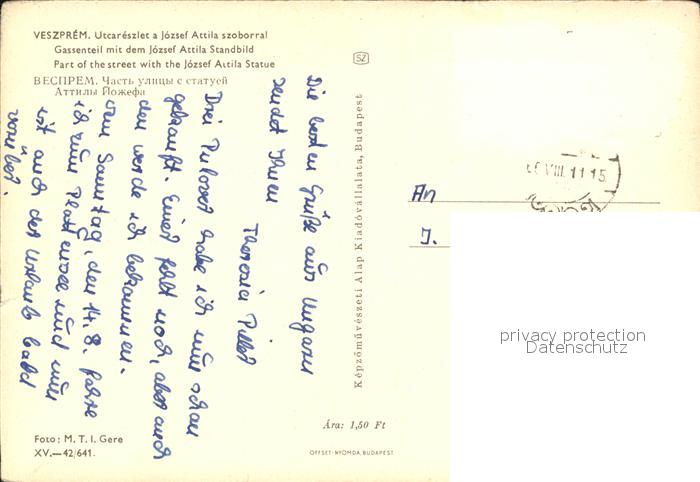 VESZPRÉM. Utcarészlet a József Attila szoborral
Gassenteil mit dem József Attila Standbild
Part of the street with the József Attila Statue
ВЕСПРЕМ. Часть улицы с статуей
Аттилы Йожефа
Die besten Grüße aus Ungarn
sendet Ihnen
Theresia
Drei Pullover habe ich nun schon
gekauft. Einer fehlt noch, aber auch
den werde ich bekommen.
Vom Samstag, den 14.8. fahre
ich zum Plattensee und nun
ist auch der Urlaub bald
vorüber.
Foto: M. T. I. Gere
XV.—42/641.
SZ
Képzőművészeti Alap Kiadóvállalata, Budapest
Ára: 1,50 Ft
OFFSET-NYOMDA, BUDAPEST
VIII.11 15
An
J.
privacy protection
Datenschutz